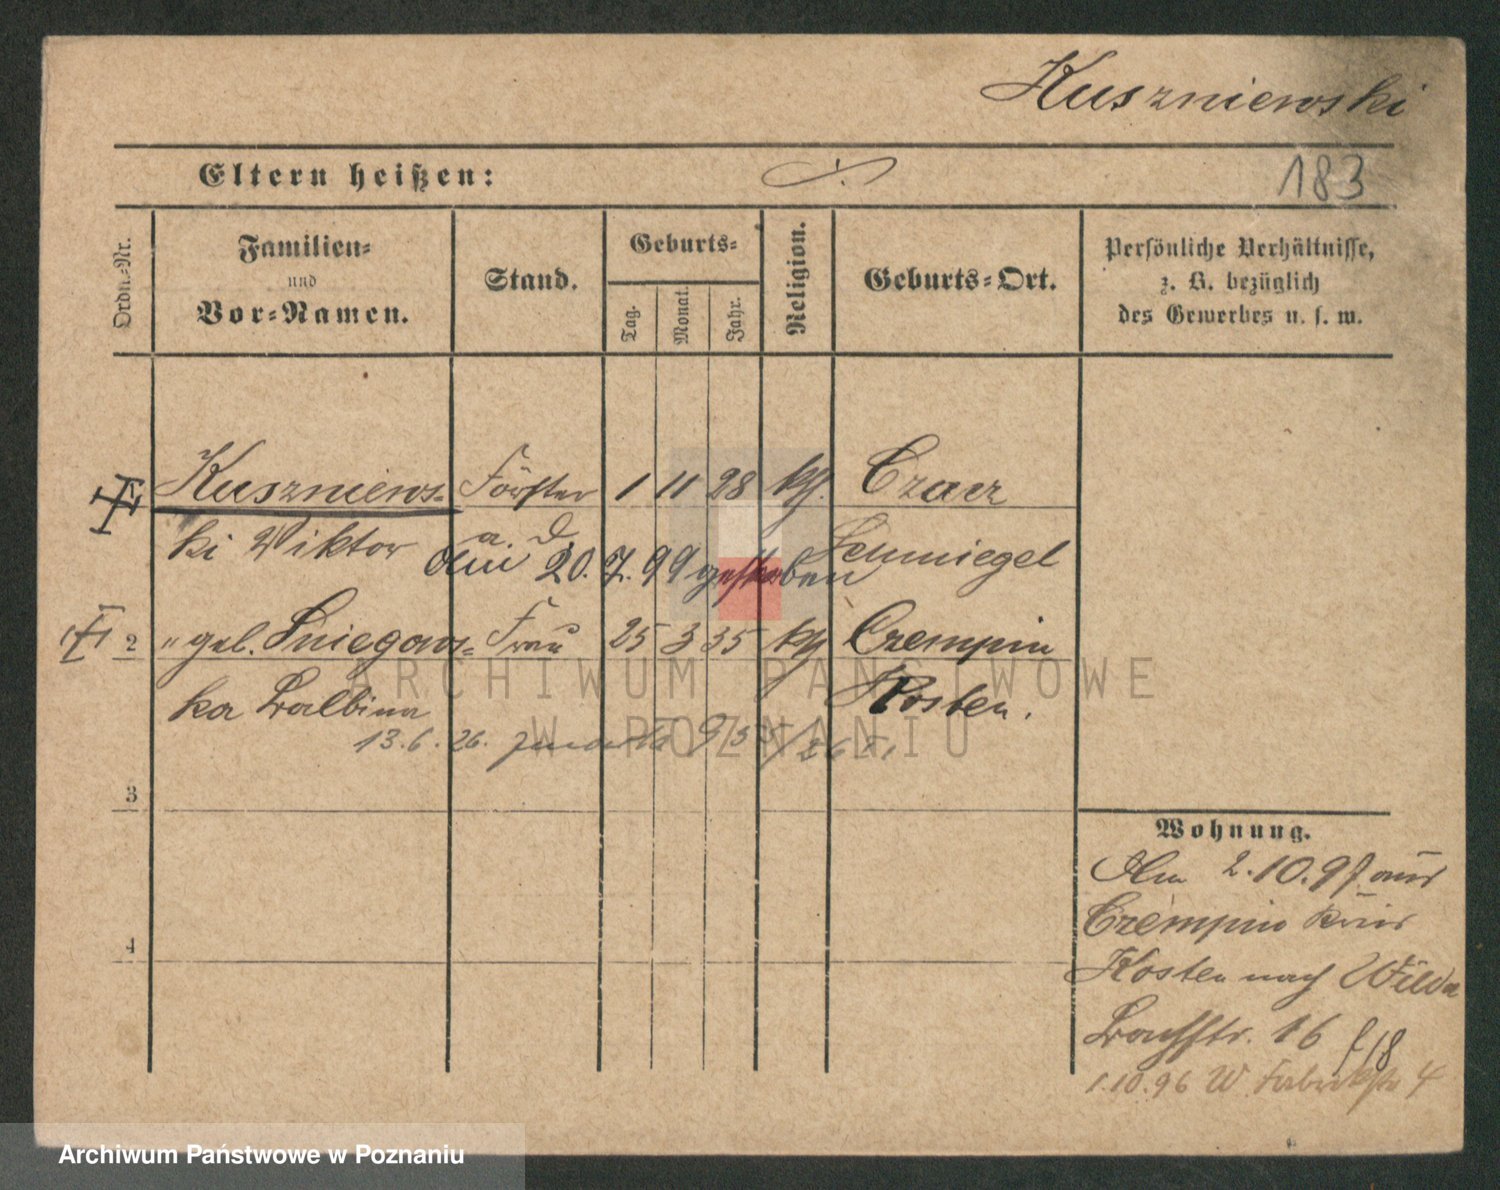 Kuszniewski
Eltern heißen: 183
Ordn.-Nr.
Familien-
und
Vor-Namen.
Stand.
Geburts-
Tag.
Monat.
Jahr.
Religion.
Geburts-Ort.
Persönliche Verhältnisse,
z. B. bezüglich
des Gewerbes u. s. w.
Kuszniews- Förster 1 11 28 kth. Czacz
ki Viktor a. D. Schmiegel
am 20. 7. 99 gestorben
2 " geb. Sniegows- Frau 25 3 35 kth Czempin
ka Balbina Kosten.
13. 6. 26.
3
4
Wohnung.
Am 2.10.97 aus
Czempin Kreis
Kosten nach Wilda
Bachstr. 16 f/18
1.10.96 W. Fabrikstr 4
ARCHIWUM PAŃSTWOWE
W POZNANIU
Archiwum Państwowe w Poznaniu